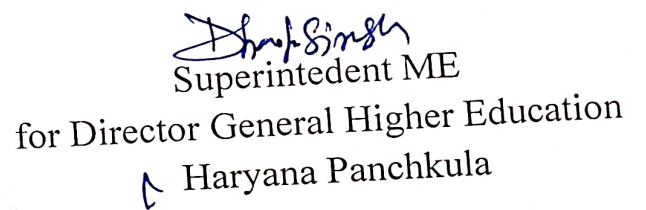 Singh
Superintedent ME
for Director General Higher Education
Haryana Panchkula